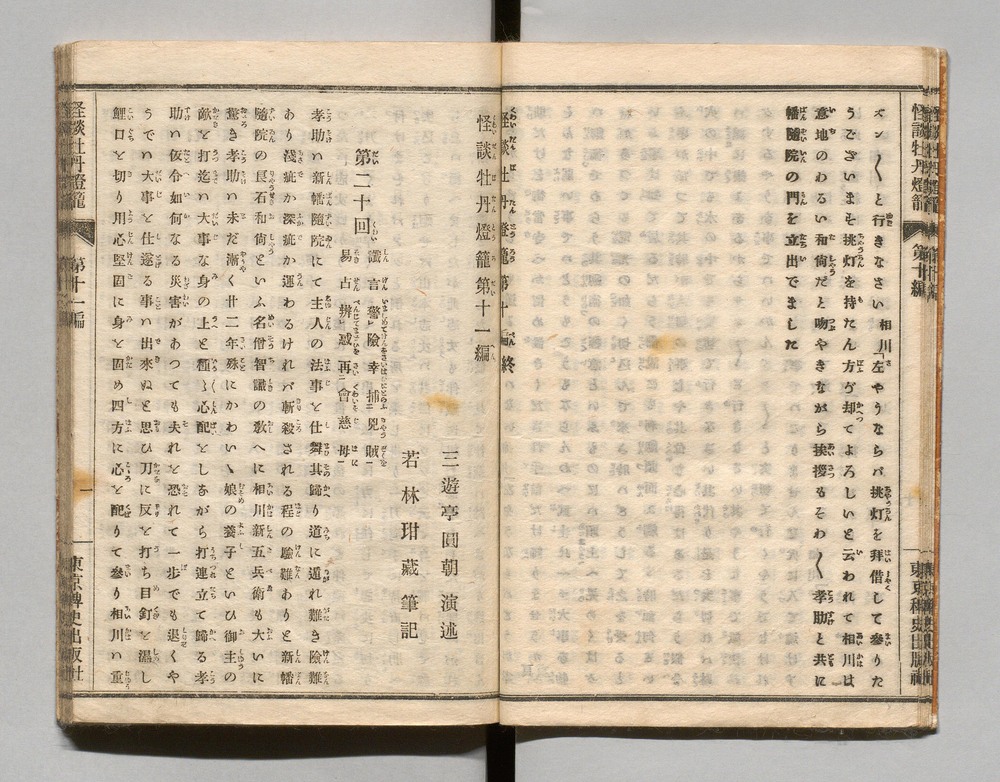 怪談牡丹燈籠
第十編
東京稗史出版社
ズン〳〵と行きなさい 相川「左やうならバ挑灯を拜借して參りた
うございまモ挑灯を持たん方ヅ却てよろしいと云われて相川は
意地のわるい和尙だと呟やきながら挨拶もそわ〳〵孝助と共に
幡隨院の門を立出でました
怪談牡丹燈籠第十編終
怪談牡丹燈籠第十一編
三遊亭圓朝演述
若林玵藏筆記
第二十回
讒言驚險幸捕兇賊
易占辨惑再會慈母
孝助ハ新幡隨院にて主人の法事を仕舞其歸り道に遁れ難き險難
あり淺疵か深疵か運わるけれバ斬殺される程の險難ありと新幡
隨院の良石和尙といふ名僧智識の敎へに相川新五兵衞も大いに
驚き孝助ハ未だ漸く廿二年殊にかわいゝ娘の養子といひ御主の
敵を打迄ハ大事な身の上と種〻心配をしながら打連立て歸る孝
助ハ仮令如何なる災害があつても夫れを恐れて一歩でも退くや
うでハ大事を仕遂る事ハ出來ぬと思ひ刀に反を打ち目釘を濕し
鯉口を切り用心堅固に身を固め四方に心を配りて參り相川ハ重
怪談牡丹燈籠
第十一編
一
東京稗史出版社